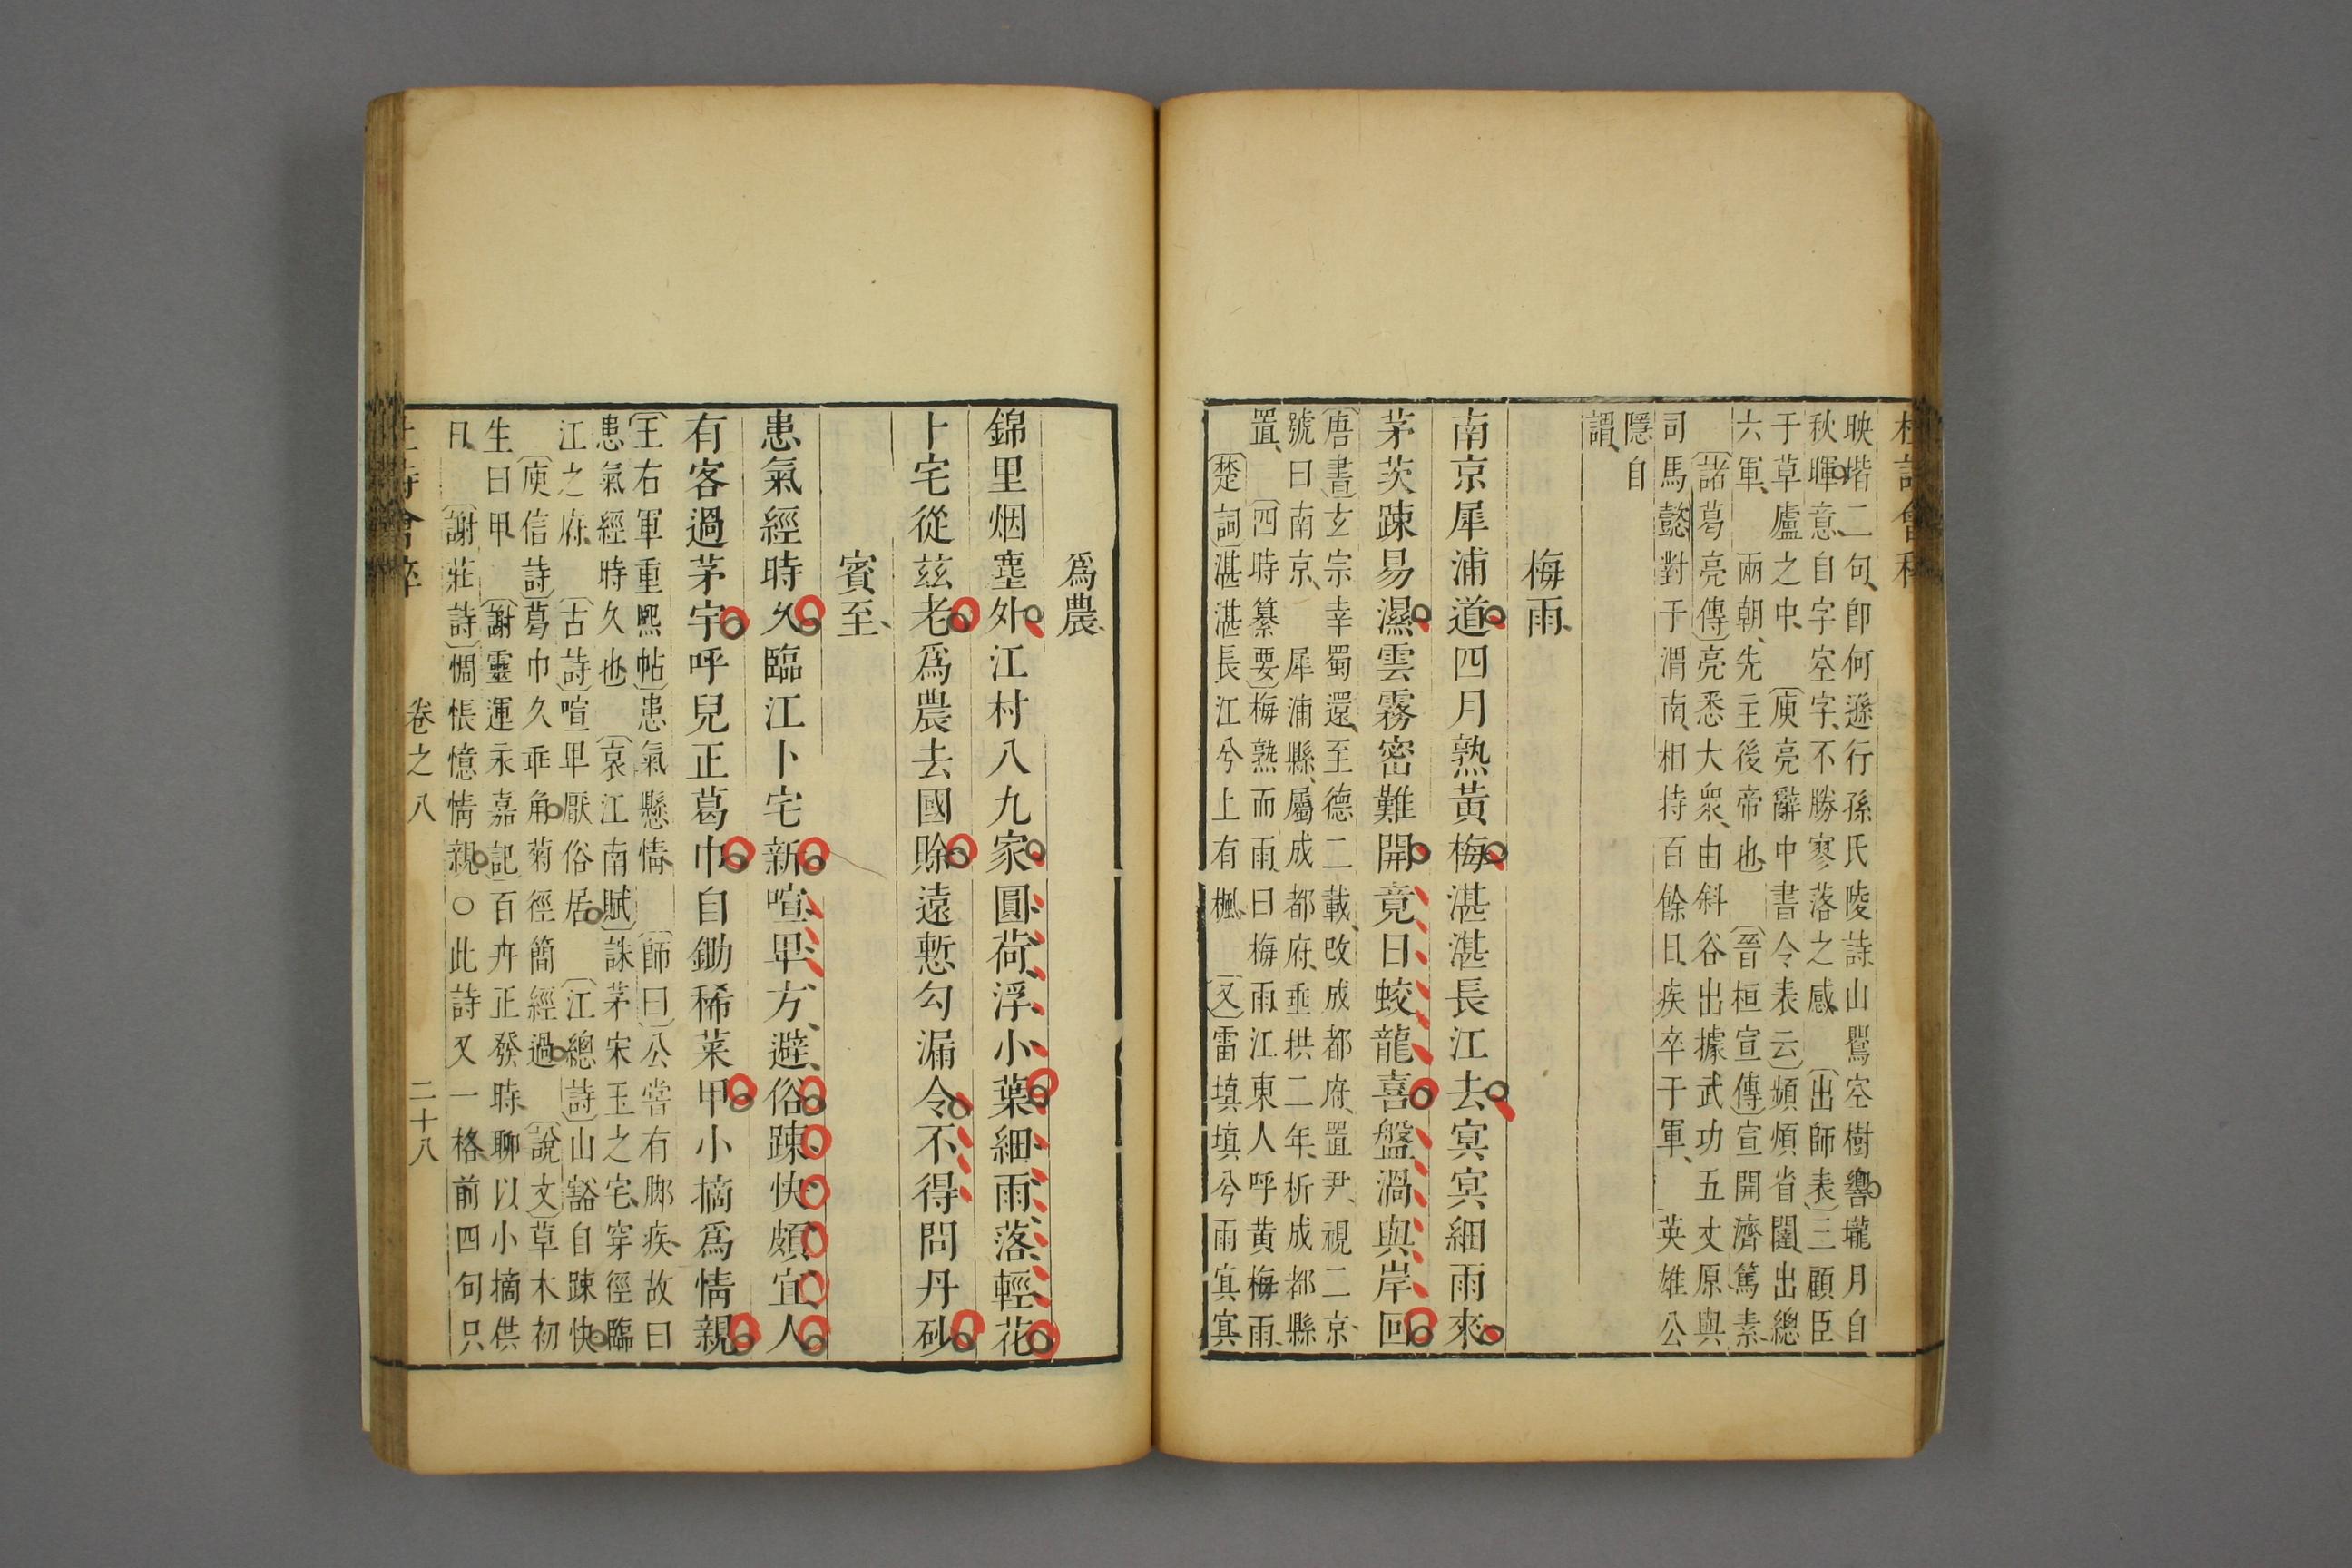 杜詩會稡
映堦二句、卽何遜行孫氏陵詩、山鸎空樹響、壠月自
秋暉、意自字空字、不勝寥落之感、〔出師表〕三顧臣
于草廬之中、〔庾亮辭中書令表云〕頻煩省闥、出總
六軍、兩朝、先主後帝也、〔晉桓宣傳〕宣開濟篤素
〔諸葛亮傳〕亮悉大衆、由斜谷出、據武功五丈原、與
司馬懿對于渭南、相持百餘日、疾卒于軍、英雄公
隱自
謂、
梅雨
南京犀浦道四月熟黃梅湛湛長江去冥冥細雨來
茅茨踈易濕雲霧密難開竟日蛟龍喜盤渦與岸回
〔唐書〕玄宗幸蜀還、至德二載、改成都府、置尹、視二京、
號曰南京、犀浦縣、屬成都府、垂拱二年、析成都縣
置、〔四時纂要〕梅熟而雨、曰梅雨、江東人呼黃梅雨、
〔楚詞〕湛湛長江兮上有楓、〔又〕雷填填兮雨冥冥
爲農
錦里烟塵外江村八九家圓荷浮小葉細雨落輕花
卜宅從茲老爲農去國賒遠慙勾漏令不得問丹砂
賓至
患氣經時久臨江卜宅新喧卑方避俗踈快頗宜人
有客過茅宇呼兒正葛巾自鋤稀菜甲小摘爲情親
〔王右軍重熙帖〕患氣懸情、〔師曰〕公嘗有脚疾、故曰
患氣經時久也、〔哀江南賦〕誅茅宋玉之宅、穿徑臨
江之府、〔古詩〕喧卑厭俗居、〔江總詩〕山豁自踈快、
〔庾信詩〕葛巾久乖角、菊徑簡經過、〔說文〕草木初
生曰甲、〔謝靈運永嘉記〕百卉正發時、聊以小摘供
日、〔謝莊詩〕惆悵憶情親○此詩又一格前四句只
杜詩會稡 卷之八 二十八